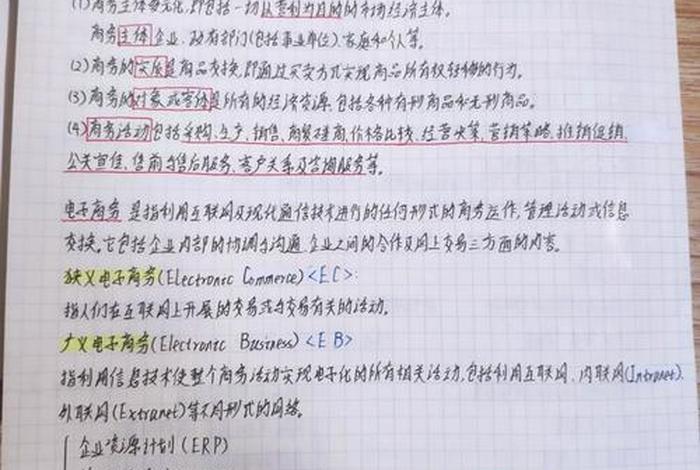 (1)商务主体多元化,即包括一切以营利为目的的市场经济主体。
商务主体企业、政府部门(包括事业单位)、家庭和个人等。
(2)商务的实质是商品交换,即通过买卖方式实现商品所有权转移的行为。
(3)商务的对象或客体是所有的经济资源,包括各种有形商品和无形商品。
(4)商务活动包括采购、生产、销售、商贸磋商、价格比较、经营决策、营销策略、推销促销、
公关宣传、售前与售后服务、客户关系及咨询服务等。
电子商务 是指利用互联网及现代通信技术进行的任何形式的商务运作,管理活动或信息
交换。它包括企业内部的协调与沟通、企业之间的合作及网上交易三方面的内容。
狭义电子商务(Electronic Commerce)<EC>:
指人们在互联网上开展的交易或与交易有关的活动。
广义电子商务(Electronic Business)<EB>
指利用信息技术使整个商务活动实现电子化的所有相关活动,包括利用互联网、内联网(Intranet)、
外联网(Extranet)等不同形式的网络。
企业资源计划(ERP)